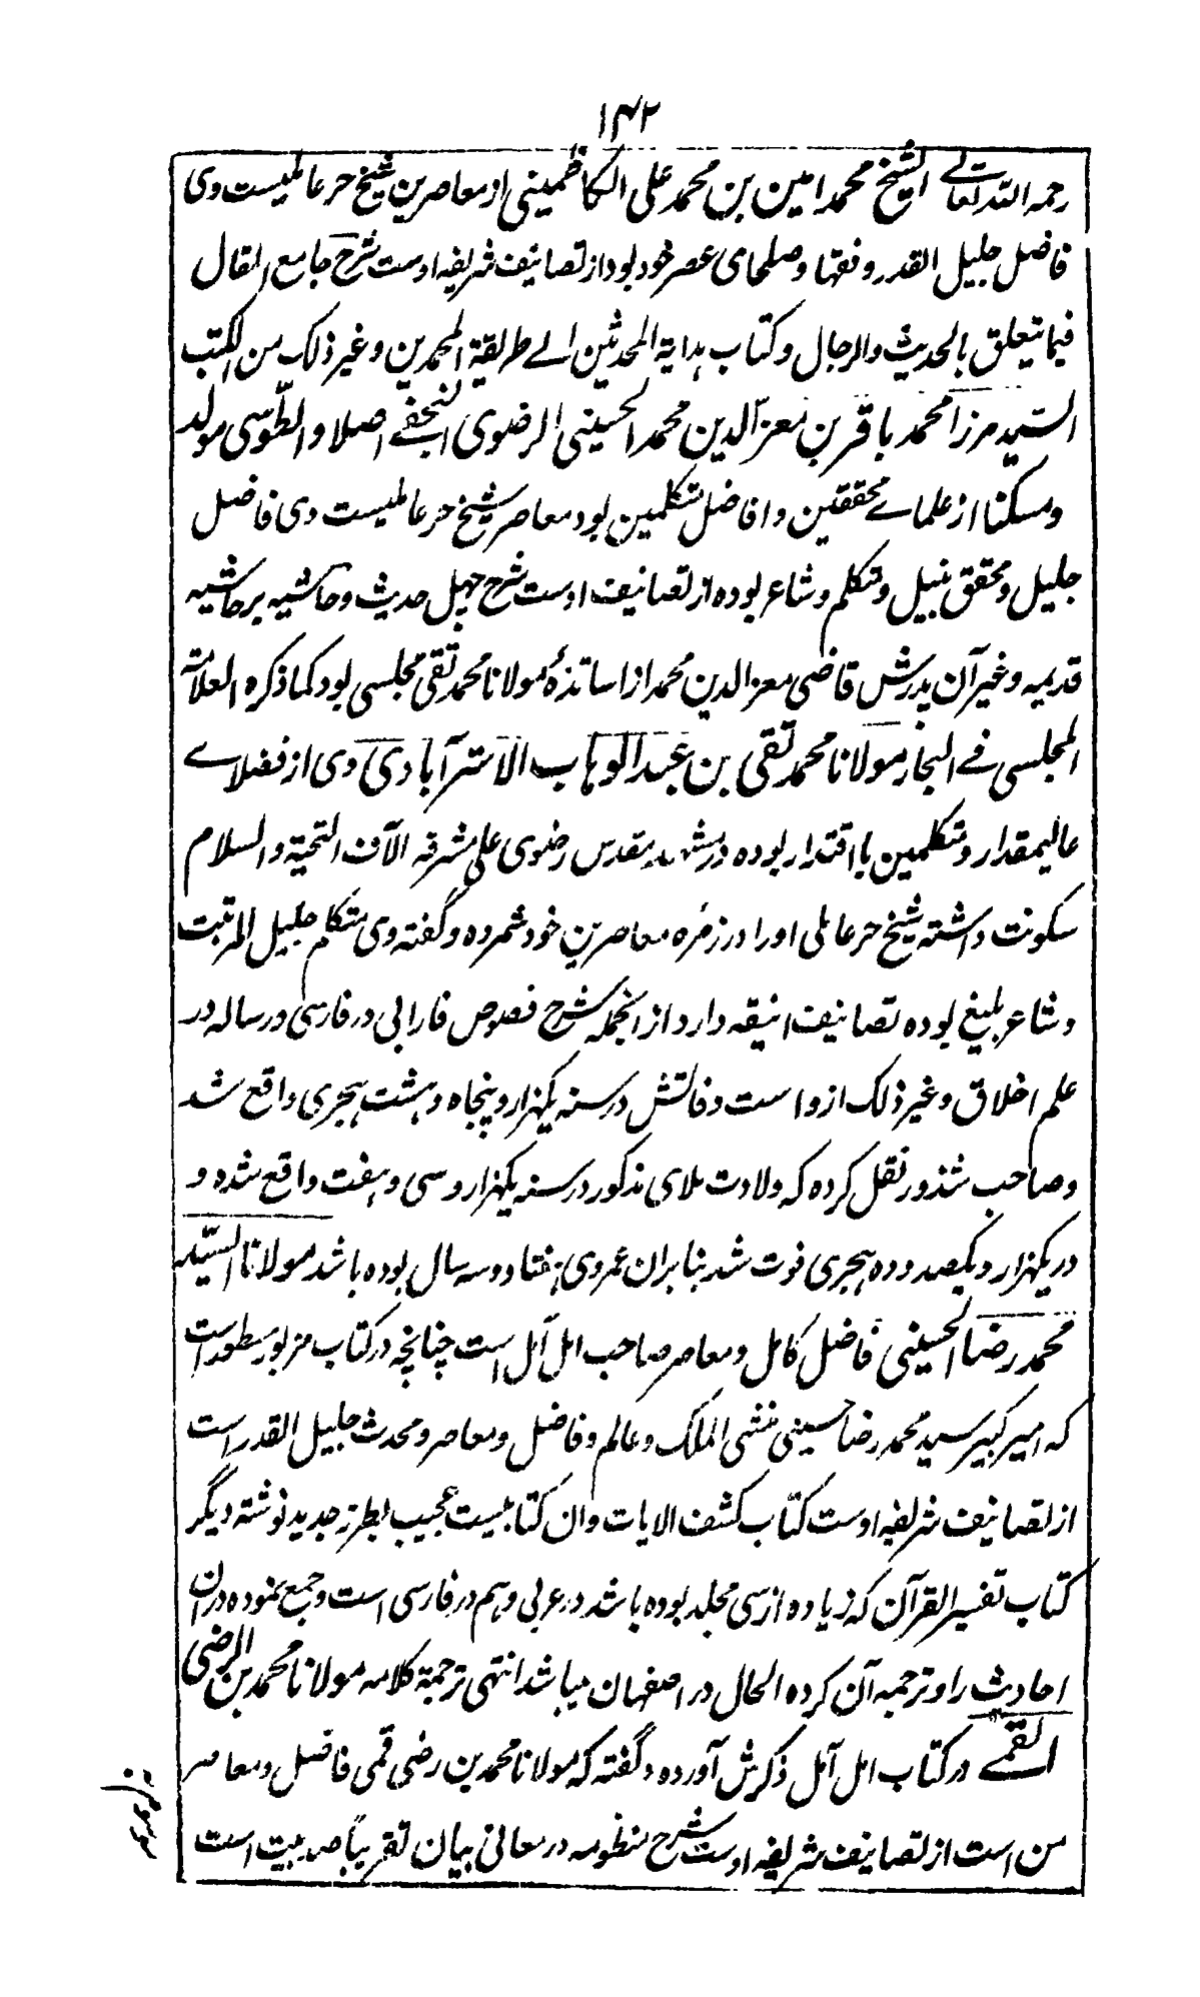 ۱۴۲
رحمه الله تعالے الشیخ محمد امین بن محمد علی الکاظمینی از معاصرین شیخ حر عاملیست وی
فاضل جلیل القدر و فقها و صلحای عصر خود بود از تصانیف شریفه اوست شرح جامع المقال
فیما یتعلق بالحدیث والرجال و کتاب هدایة المحدثین الے طریقة المحمدین و غیر ذلک من الکتب
السید مرزا محمد باقر بن معز الدین محمد الحسینی الرضوی النجفے اصلا و الطّوسی مولد
و مسکنا از علماے محققین و افاضل متکلمین بود معاصر شیخ حر عاملیست وی فاضل
جلیل و محقق نبیل و متکلم و شاعر بوده از تصانیف اوست شرح چهل حدیث و حاشیه بر حاشیه
قدیمه و غیر آن پدرش قاضی معز الدین محمد از اساتذهٔ مولانا محمد تقی مجلسی بود کما ذکره العلامة
المجلسی فے البحار مولانا محمد تقی بن عبد الوهاب الاسترآبادی وی از فضلاے
عالیمقدار و متکلمین با اقتدار بوده در مشهد مقدس رضوی علی مشرفه الآف التحیة والسلام
سکونت داشته شیخ حر عاملی اورا در زمره معاصرین خود شمرده و گفته وی متکلم جلیل المرتبت
و شاعر بلیغ بوده تصانیف انیقه دارد از انجمله شرح فصوص فارابی در فارسی و رساله در
علم اخلاق و غیر ذلک از و است وفاتش در سنه یکهزار و پنجاه و هشت هجری واقع شد
و صاحب شذور نقل کرده که ولادت ملای مذکور در سنه یکهزار و سی و هفت واقع شده و
در یکهزار و یکصد و ده هجری فوت شد بنا بران عمر وی هفتاد و سه سال بوده باشد مولانا السیّد
محمد رضا الحسینی فاضل کامل و معاصر صاحب امل آمل است چنانچه در کتاب مزبور مسطور است
که امیر کبیر سید محمد رضا حسینی منشی الملک و عالم و فاضل و معاصر و محدث جلیل القدر است
از تصانیف شریفه اوست کتاب کشف الایات و ان کتابیست عجیب بطرز جدید نوشته دیگر
کتاب تفسیر القرآن که زیاده از سی مجلد بوده باشد در عربی و هم در فارسی است و جمع نموده دران
احادیث را و ترجمه آن کرده الحال در اصفهان میباشد انتهی ترجمة کلامه مولانا محمد بن الرضی
القمے در کتاب امل آمل ذکرش آورده و گفته که مولانا محمد بن رضی قمی فاضل و معاصر
من است از تصانیف شریفه اوست شرح منظومه در معانی بیان تقریباً صد بیت است